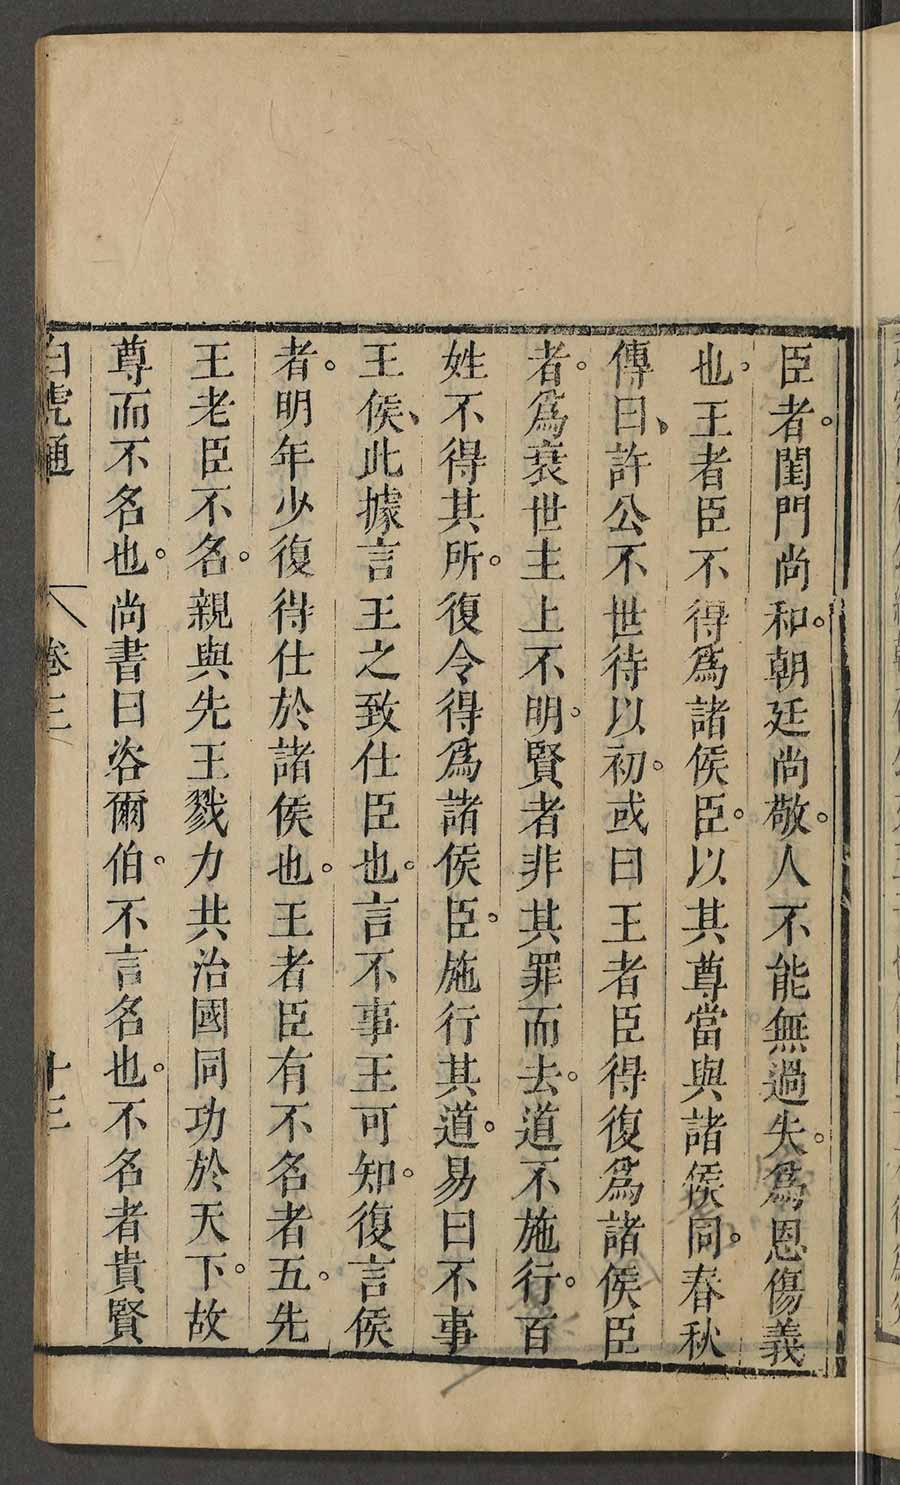 臣者。閨門尚和。朝廷尚敬。人不能無過失。爲恩傷義
也。王者臣不得爲諸侯臣。以其尊當與諸侯同。春秋
傳曰、許公不世待以初。或曰王者臣得復爲諸侯臣
者。爲衰世主上不明。賢者非其罪而去。道不施行。百
姓不得其所。復令得爲諸侯臣。施行其道。易曰不事
王侯、此據言王之致仕臣也。言不事王可知。復言侯
者。明年少復得仕於諸侯也。王者臣有不名者五。先
王老臣不名。親與先王戮力共治國同功於天下。故
尊而不名也。尚書曰咨爾伯。不言名也。不名者貴賢
白虎通 卷三 十三